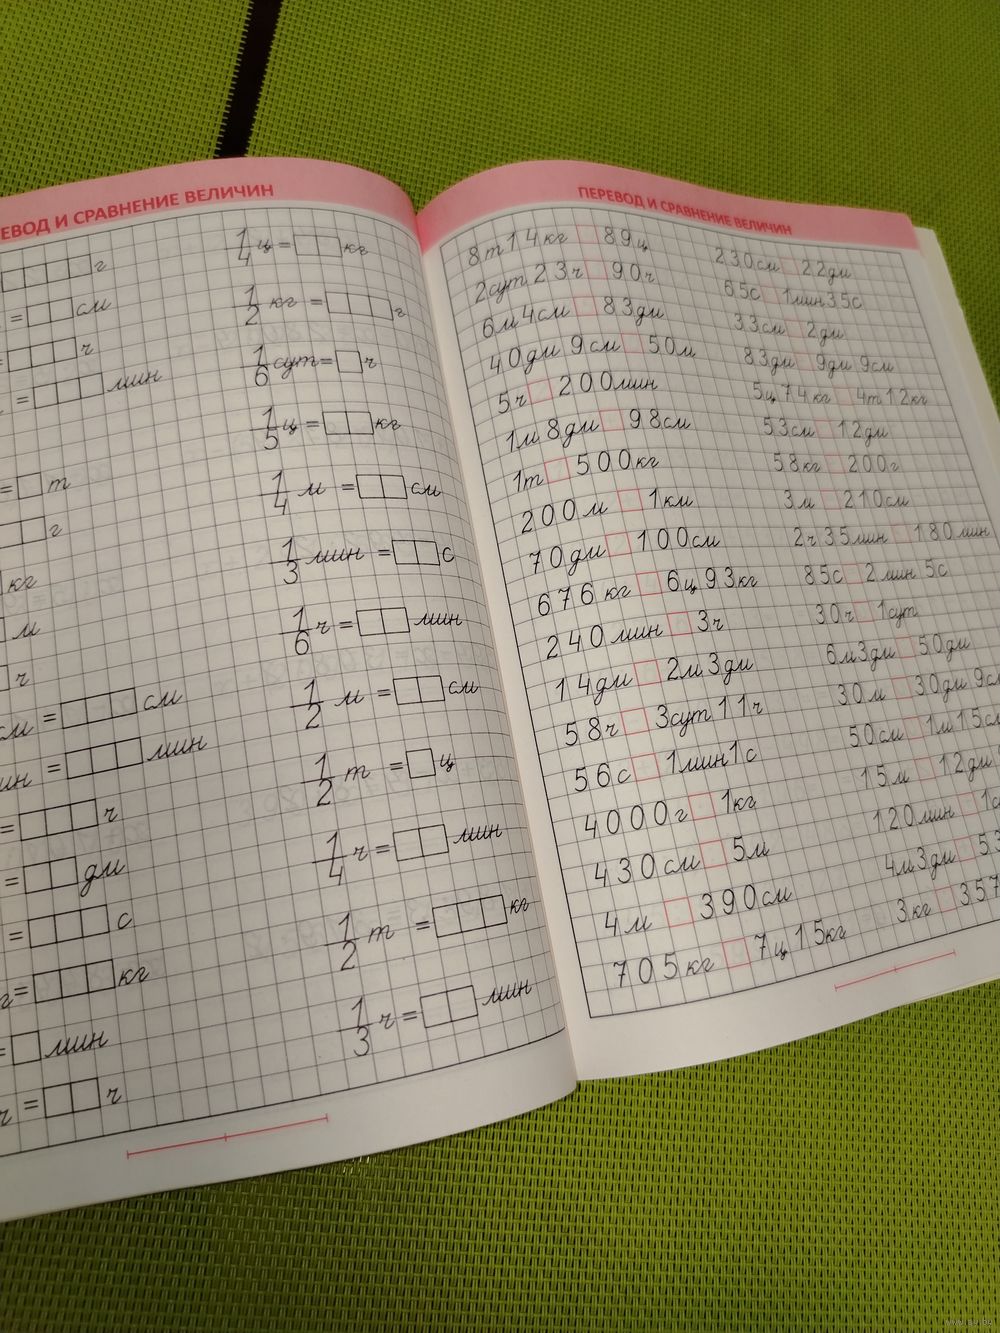 ЕВОД И СРАВНЕНИЕ ВЕЛИЧИН
г
= см
ч
= мин
= т
г
кг
м
ч
см = см
ин = мин
= ч
= дм
= с
г = кг
= мин
ч = ч
1/4 ц = кг
1/2 кг = г
1/6 сут = ч
1/5 ц = кг
1/4 м = см
1/3 мин = с
1/6 ч = мин
1/2 м = см
1/2 т = ц
1/4 ч = мин
1/2 т = кг
1/3 ч = мин
ПЕРЕВОД И СРАВНЕНИЕ ВЕЛИЧИН
8т 14кг 89ц
2сут 23ч 90ч
6м 4см 83дм
40дм 9см 50м
5ч 200мин
1м 8дм 98см
1т 500кг
200м 1км
70дм 100см
676кг 6ц 93кг
240мин 3ч
14дм 2м 3дм
58ч 3сут 11ч
56с 1мин 1с
4000г 1кг
430см 5м
4м 390см
705кг 7ц 15кг
230см 22дм
65с 1мин 35с
33см 2дм
83дм 9дм 9см
5ц 74кг 4т 12кг
53см 12дм
58кг 200г
3м 210см
2ч 35мин 180мин
85с 2мин 5с
30ч 1сут
6м 3дм 50дм
30м 30дм 9с
50см 1м 15см
15м 12дм
120мин 1с
4м 3дм 53
3кг 357